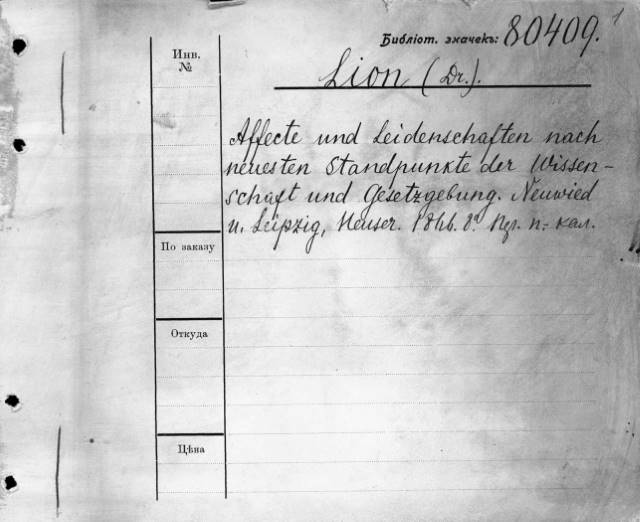 Библіот. значекъ: 80409. 1
Инв.
№
Lion (Dr.).
Affecte und Leidenschaften nach
neuesten Standpunkte der Wissen-
schaft und Gesetzgebung. Neuwied
u. Leipzig, Heuser. 1866. 8º. п. кал.
По заказу
Откуда
Цѣна